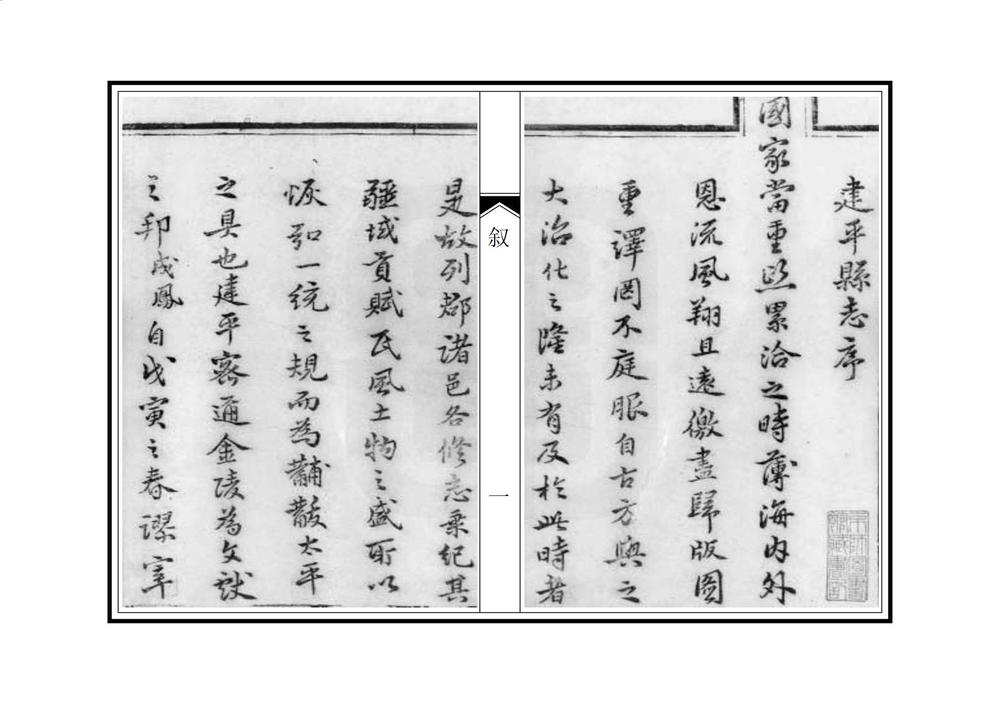 建平縣志序
國家當重熙累洽之時薄海内外
恩流風翔且遠徼盡歸版圖
重譯罔不庭服自古方輿之
大治化之隆未有及於此時者
叙
一
是故列郡諸邑各修志乘紀其
疆域貢賦民風土物之盛所以
恢弘一統之規而為黼黻太平
之具也建平密通金陵為文獻
之邦成鳳自戊寅之春謬宰